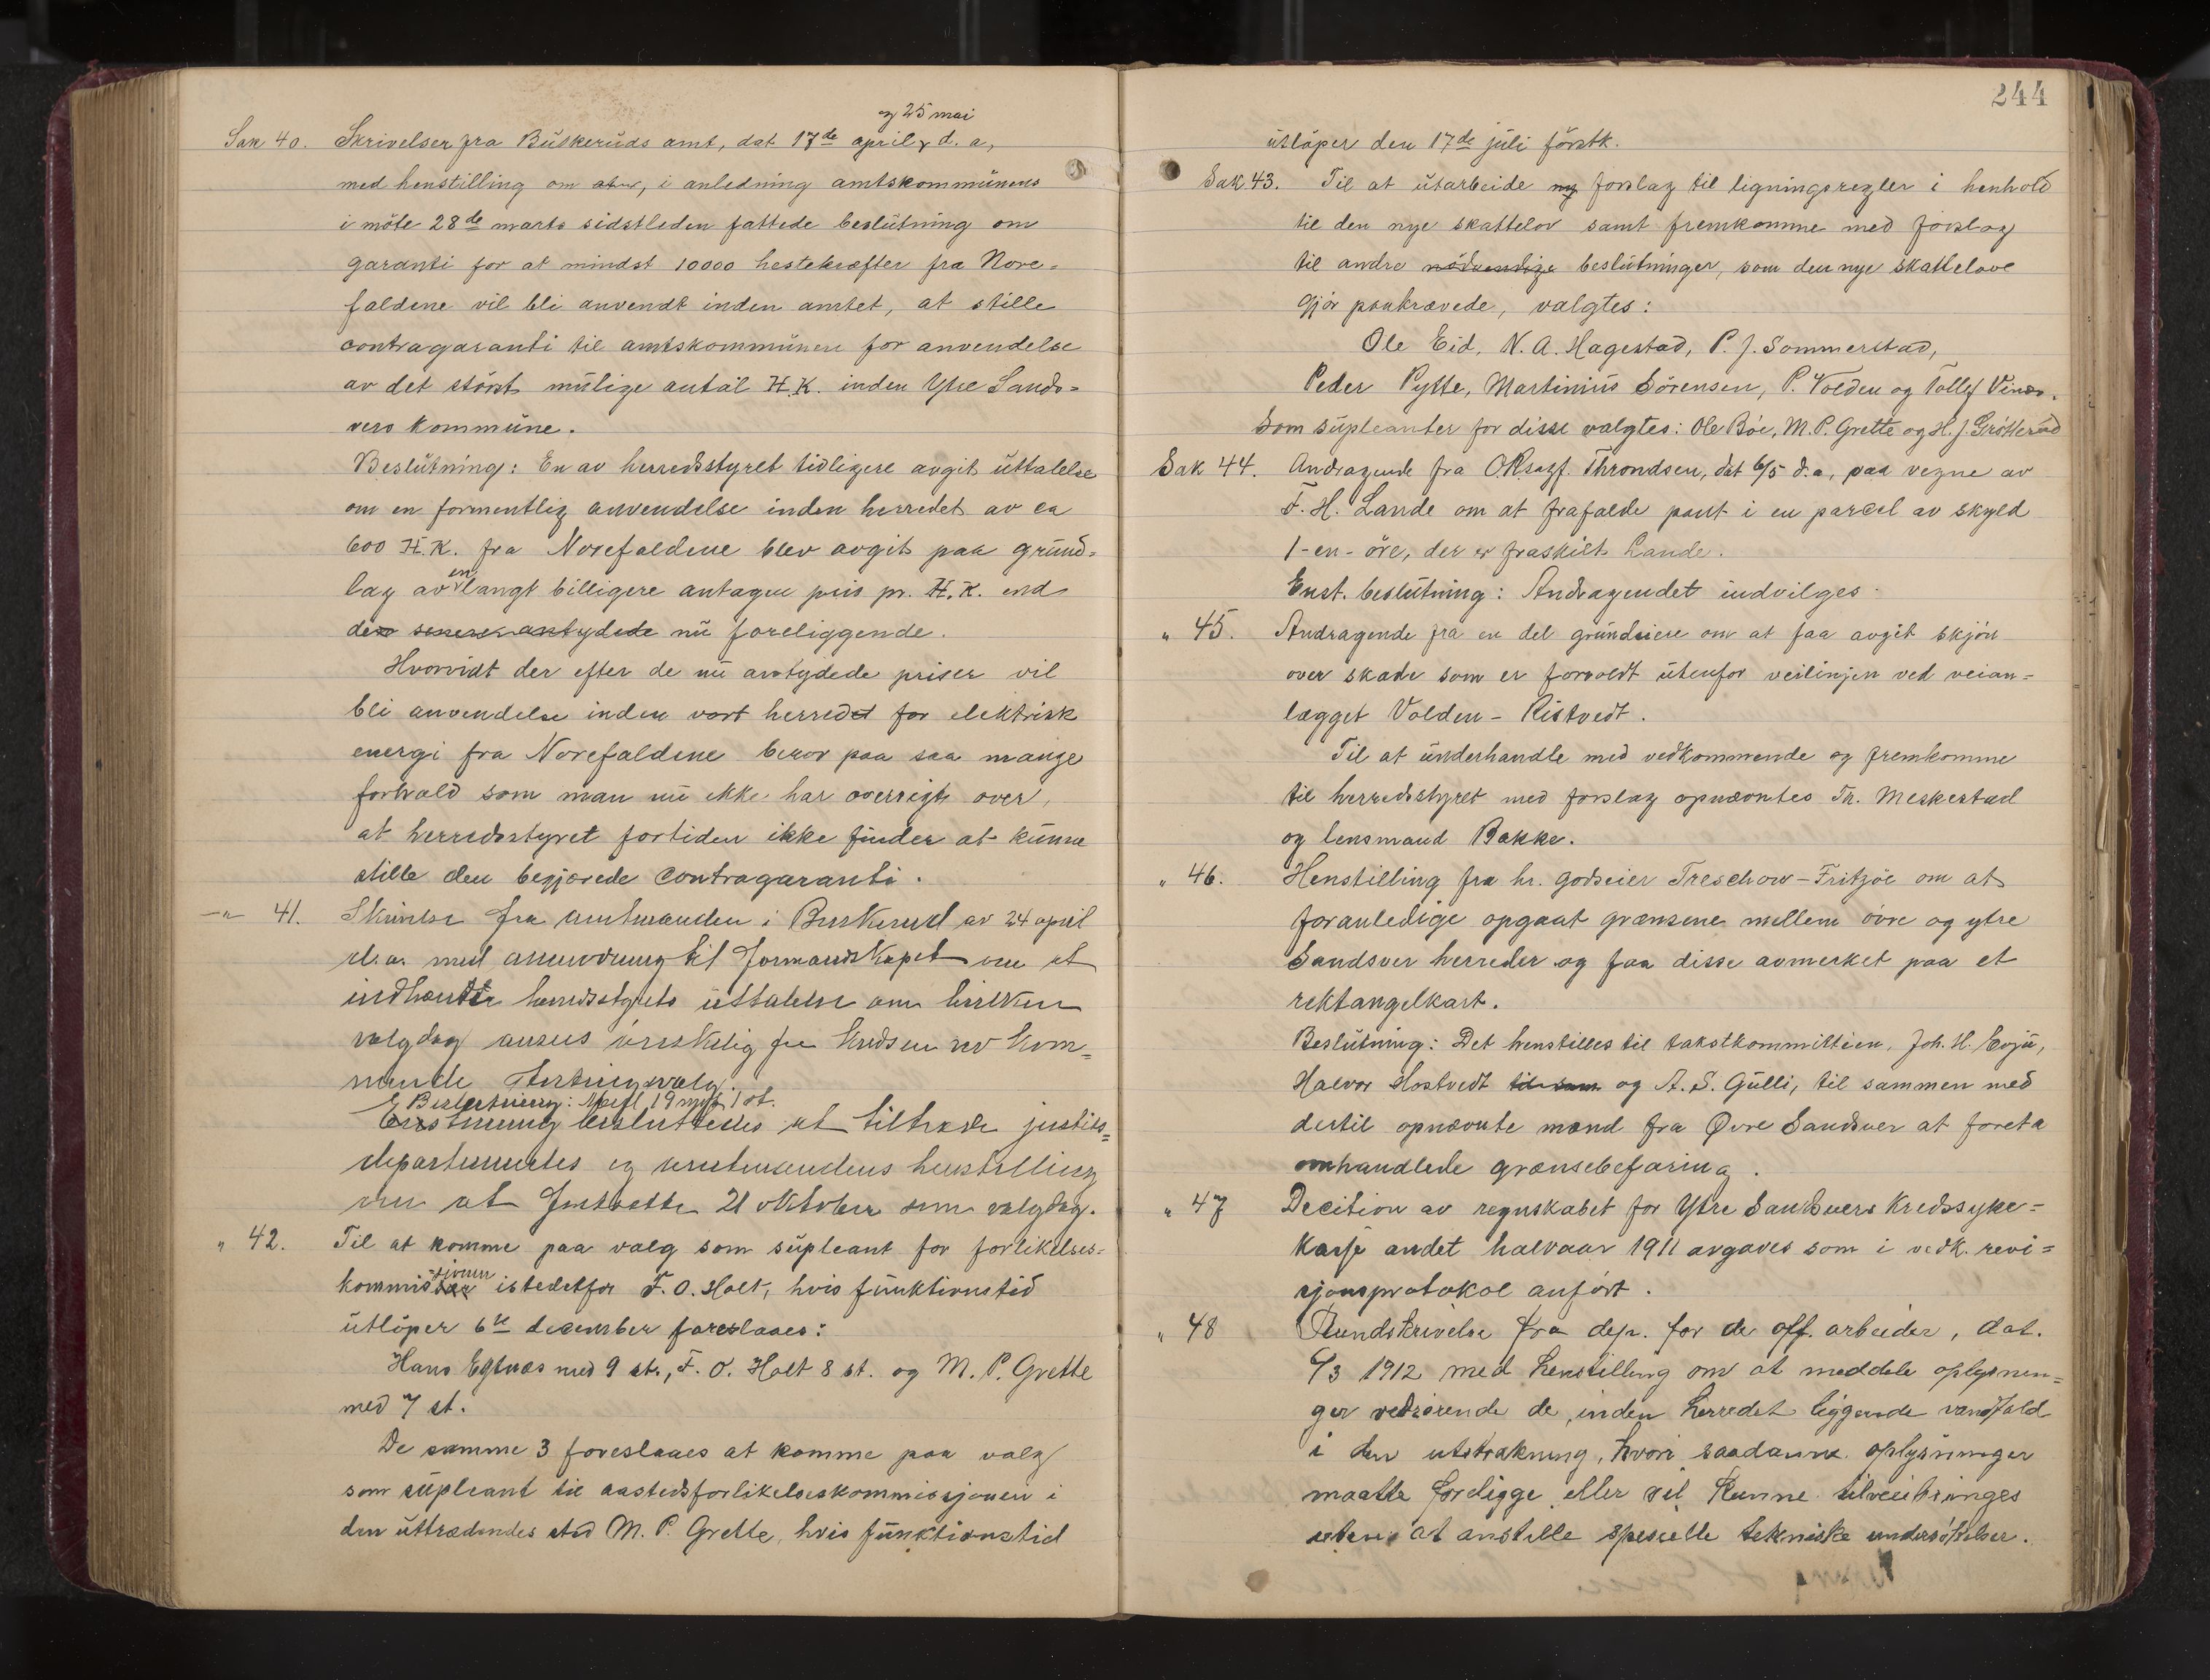 og 25 mai
Sak 40. Skrivelser fra Buskeruds amt, dat 17de april d. a,
med henstilling om at, i anledning amtskommunens
i møte 28de marts sidstleden fattede beslutning om
garanti for at mindst 10000 hestekræfter fra Nore-
faldene vil bli anvendt inden amtet, at stille
contragaranti til amtskommunen for anvendelse
av det størst mulige antal H.K. inden Ytre Sands-
vers kommune.
Beslutning: En av herredsstyret tidligere avgit uttalelse
om en formentlig anvendelse inden herredet av ca
600 H.K. fra Norefaldene blev avgit paa grund-
lag av en langt billigere antagen pris pr. H.K. end
den senere antydede nu foreliggende.
Hvorvidt der efter de nu antydede priser vil
bli anvendelse inden vort herred for elektrisk
energi fra Norefaldene beror paa saa mange
forhold som man nu ikke har oversigt over,
at herredsstyret fortiden ikke finder at kunne
stille den begjærede contragaranti.
-"- 41. Skrivelse fra amtmanden i Buskerud av 24 april
d.a. med anmodning til formandskapet om at
indhente herredsstyrets uttalelse om hvilken
valgdag ansees ønskelig for kredsen ved kom-
mende stortingsvalg.
Beslutning: 19 mot 1 st.
besluttedes at tiltræde justits-
departementes og amtmandens henstilling
om at fastsætte 21 oktober som valgdag.
" 42. Til at komme paa valg som supleant for forlikelses-
kommissionen istedetfor F. O. Holt, hvis funktionstid
utløper 6te december foreslaaes:
Hans Egtnæs med 9 st., F. O. Holt 8 st. og M. P. Grette
med 7 st.
De samme 3 foreslaaes at komme paa valg
som supleant til aastedsforlikelseskommissjonen i
den uttrædendes sted M. P. Grette, hvis funktionstid
244
utløper den 17de juli førstk.
Sak 43. Til at utarbeide ny forslag til ligningsregler i henhold
til den nye skattelov samt fremkomme med forslag
til andre nødvendige beslutninger, som den nye skattelove
gjør paakrævede, valgtes:
Ole Eid, N. A. Hagestad, P. J. Sommerstad,
Peder Pytte, Martinius Sørensen, P. Volden og Tollef Vinæs.
Som supleanter for disse valgtes: Ole Bøe, M. P. Grette og H. J. Grøtterud
Sak 44. Andragende fra O.R.sagf. Throndsen, dat 6/5 d.a, paa vegne av
F. H. Lande om at frafalde pant i en parcel av skyld
1-en-øre, der er fraskilt Lande.
Enst. beslutning: Andragendet indvilges.
" 45. Andragende fra en del grundeiere om at faa avgit skjøn
over skade som er forvoldt utenfor veilinjen ved veian-
lægget Volden - Ristvedt.
Til at underhandle med vedkommende og fremkomme
til herredsstyret med forslag opnævntes Th. Meskestad
og lensmand Bakke.
" 46. Henstilling fra hr. godseier Treschow-Fritzøe om at
foranledige opgaat grænsene mellem øvre og ytre
Sandsver herreder og faa disse avmerket paa et
rektangelkart.
Beslutning: Det henstilles til takstkommitteen, Joh. H. Evju,
Halvor Hostvedt til sam og A. S. Gulli, til sammen med
dertil opnævnte mænd fra Øvre Sandsver at foreta
omhandlede grænsebefaring.
" 47 Decition av regnskabet for Ytre Sandsvers kredssyke-
kasse andet halvaar 1911 avgaves som i vedk. revi-
sjonsprotokol anført.
" 48 Rundskrivelse fra dep. for de off. arbeider, dat.
6/3 1912 med henstilling om at meddele oplysnin-
ger vedrørende de inden herredet liggende vandfald
i den utstrækning, hvori saadanne oplysninger
maatte foreligge eller vil kunne tilveiebringes
uten at anstille specielle tekniske undersøkelser.